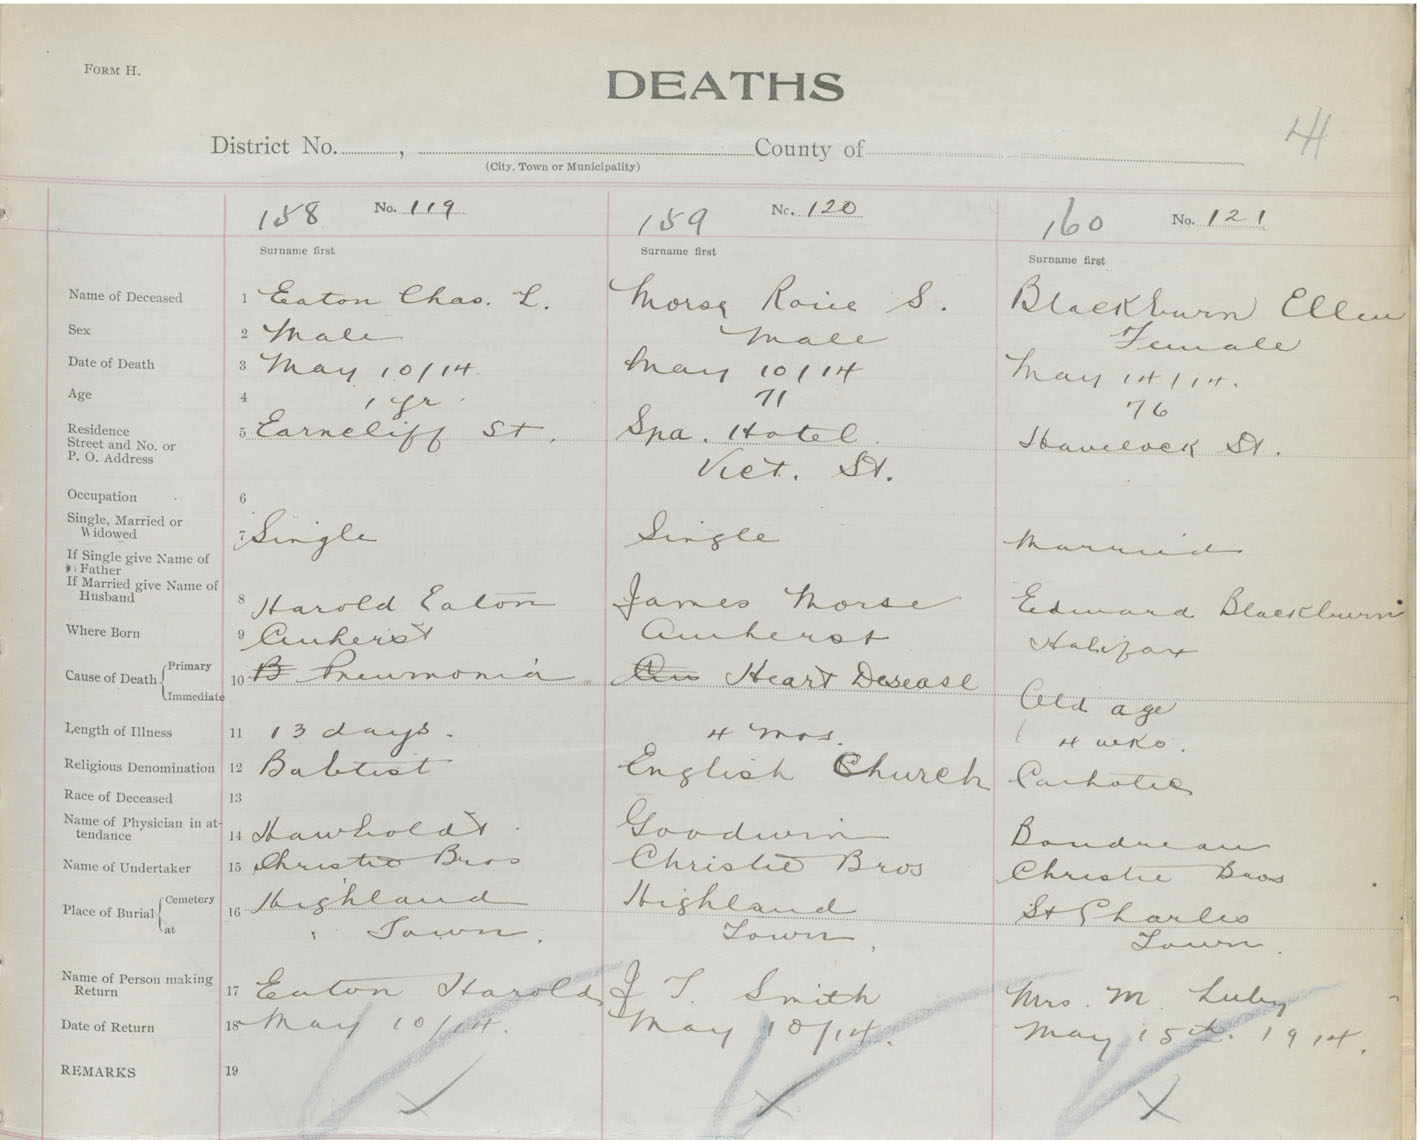 FORM H.
DEATHS
44
District No. , County of
(City, Town or Municipality)
158 No. 119 159 No. 120 160 No. 121
Surname first Surname first Surname first
Name of Deceased 1 Eaton Chas. L. Morse S. Blackburn Ellen
Sex 2 Male Male Female
Date of Death 3 May 10/14 May 10/14 May 14/14.
Age 4 1 yr. 71 76
Residence
Street and No. or
P. O. Address
5 Earncliff St. Spa. Hotel. Havelock St.
Vict. St.
Occupation 6
Single, Married or
Widowed
7 Single Single Married
If Single give Name of
Father
If Married give Name of
Husband
8 Harold Eaton James Morse Edward Blackburn
Where Born 9 Amherst Amherst Halifax
Cause of Death { Primary
Immediate
10 B Pneumonia Am Heart Desease Old age
Length of Illness 11 13 days. 4 mos. 4 wks.
Religious Denomination 12 Babtist English Church Catholic
Race of Deceased 13
Name of Physician in at-
tendance
14 Goodwin Boudreau
Name of Undertaker 15 Christie Bros Christie Bros Christie Bros
Place of Burial { Cemetery
at
16 Highland Highland St Charles
Town. Town. Town.
Name of Person making
Return
17 Eaton Harold J. T. Smith Mrs. M. Luby
Date of Return 18 May 10/14. May 10/14. May 15th. 1914.
REMARKS 19
X X X